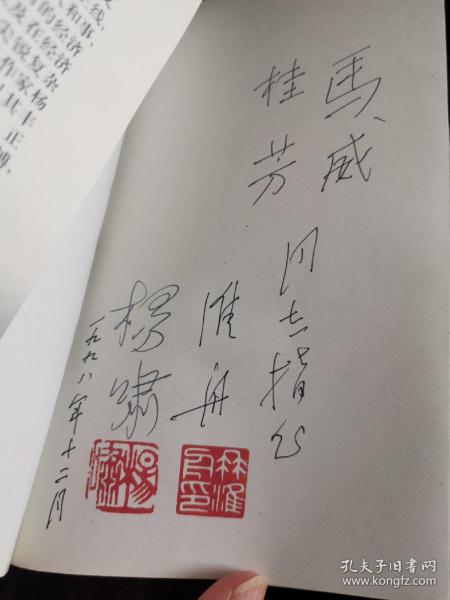 线,
和事,
的经济
及在经济
尖锐复杂
作家杨
其丰
正
博,
馬、威
桂芳
同志指正
淮舟
杨啸
一九九八年十二月
孔夫子旧书网
www.kongfz.com